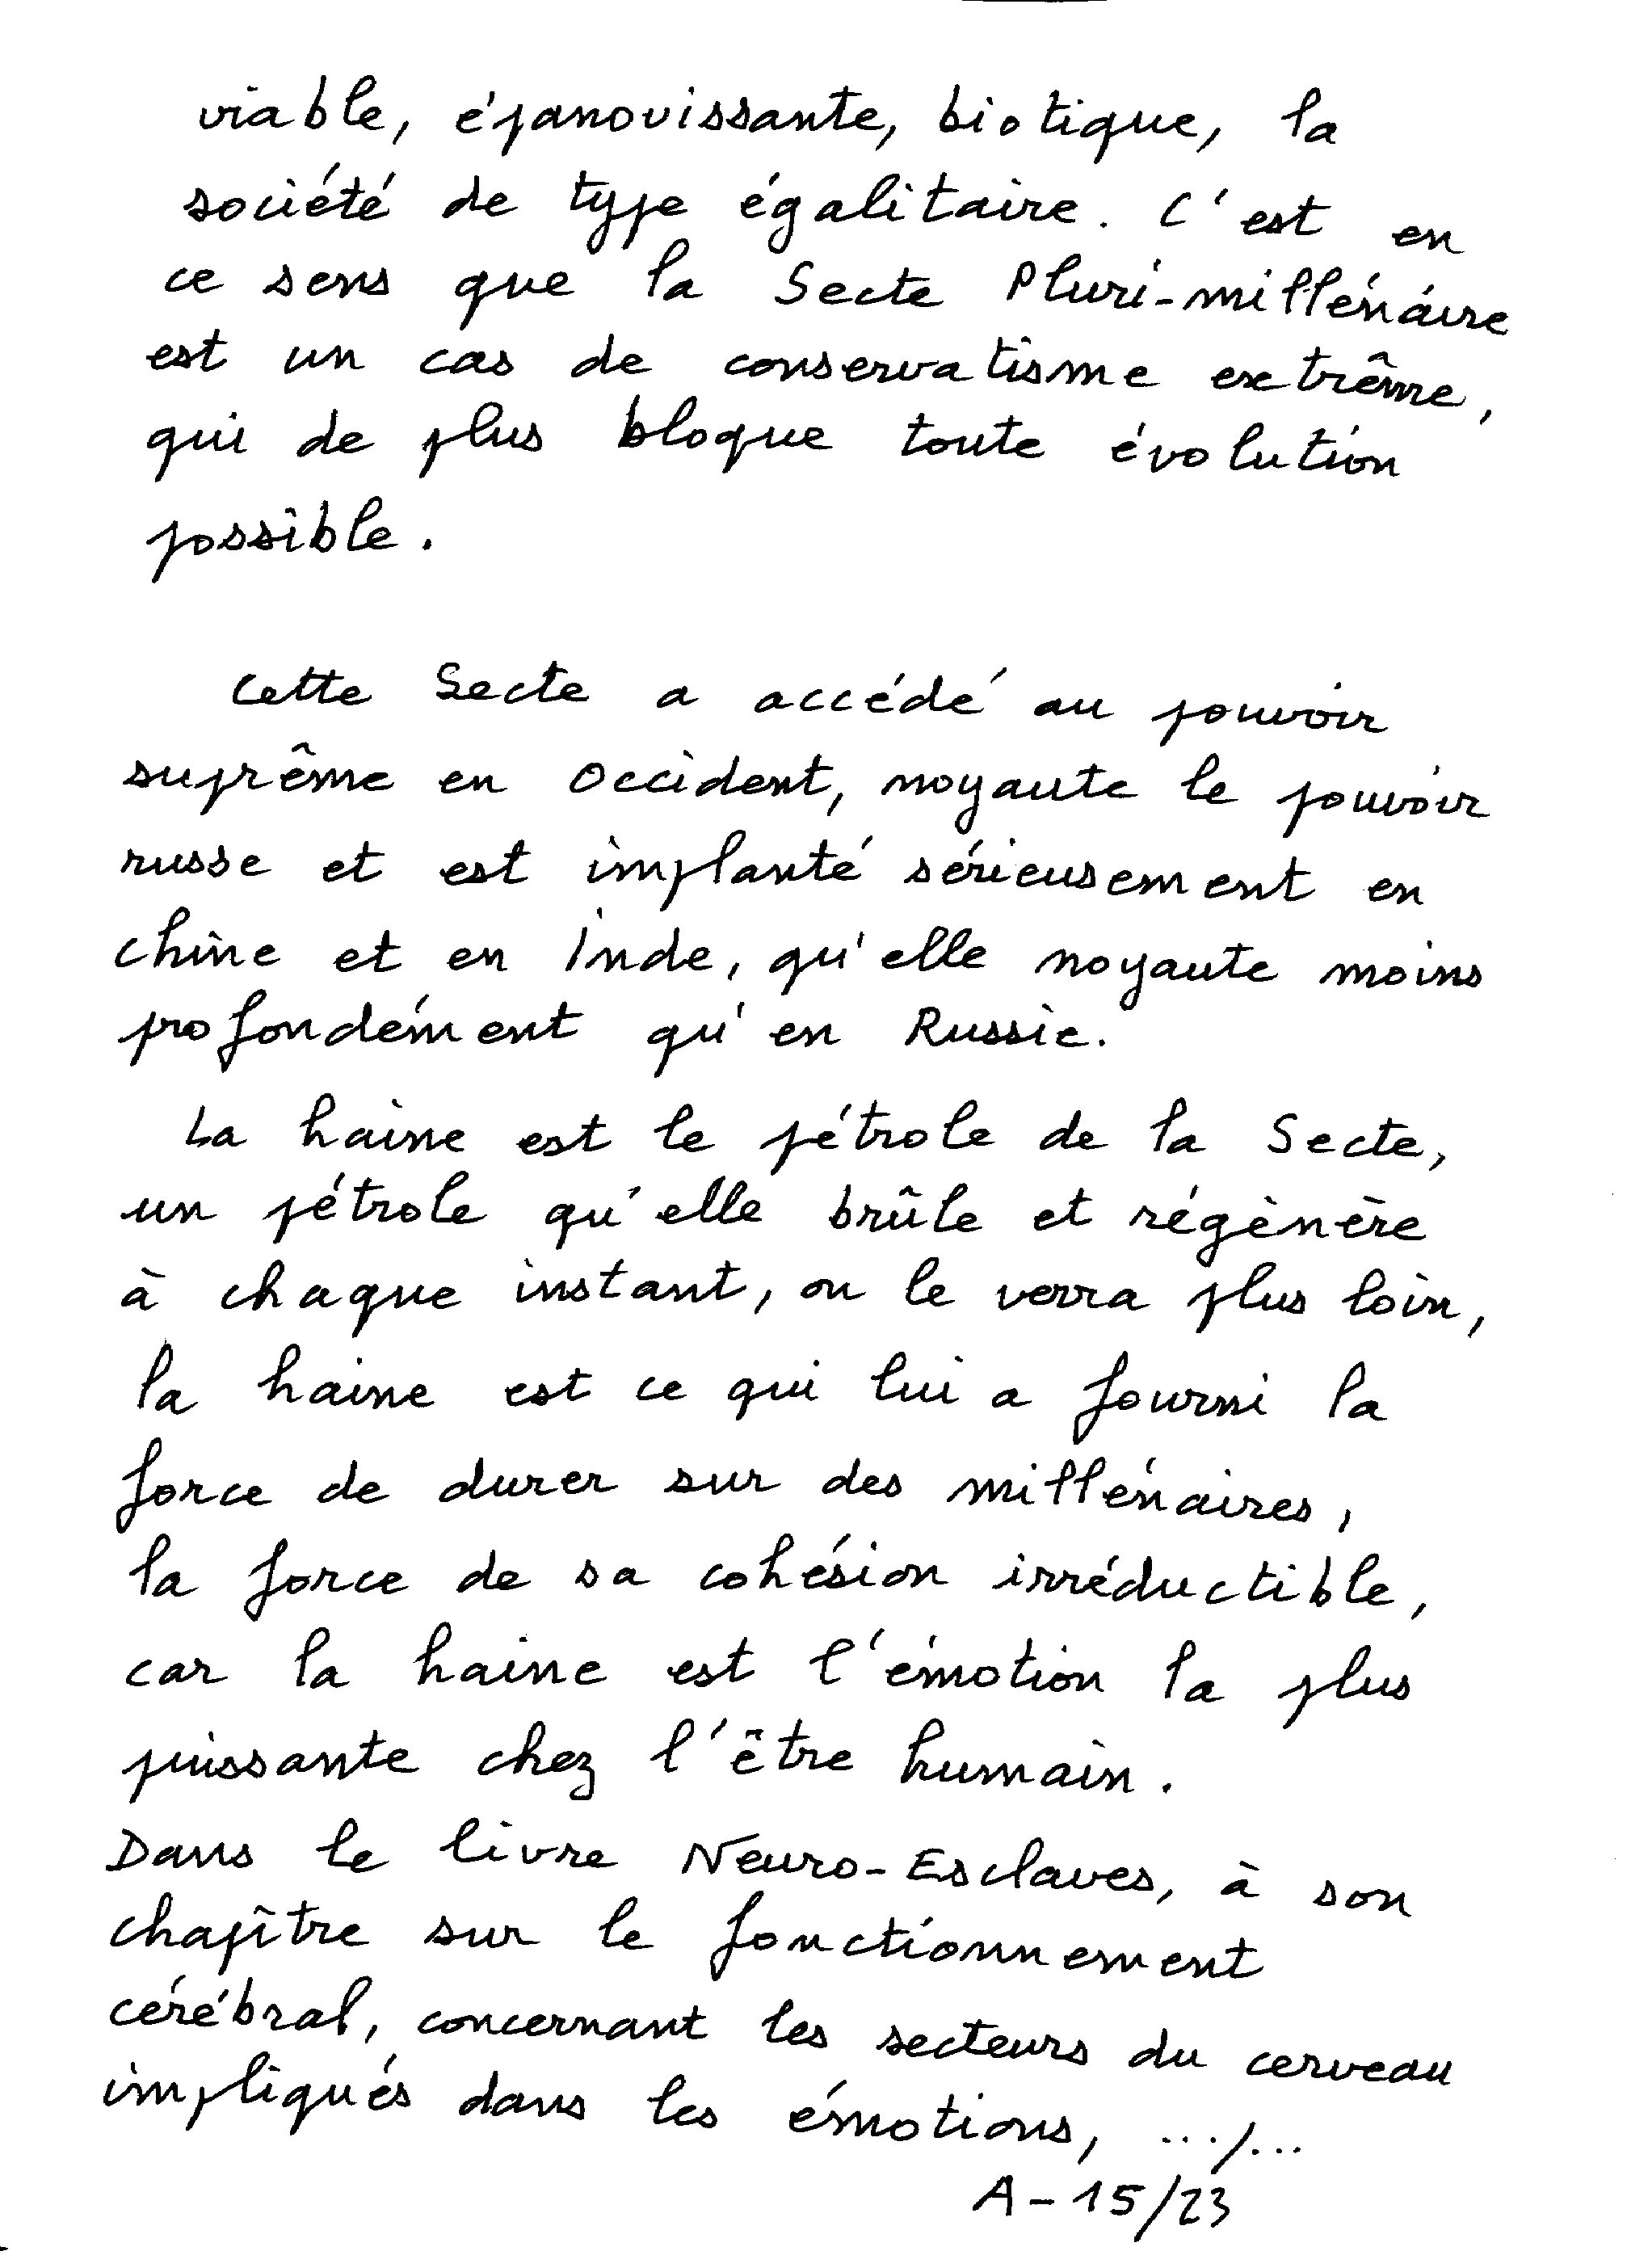 viable, épanouissante, biotique, la
société de type égalitaire. C'est en
ce sens que la Secte Pluri-millénaire
est un cas de conservatisme extrême,
qui de plus bloque toute évolution
possible.
Cette Secte a accédé au pouvoir
suprême en Occident, noyaute le pouvoir
russe et est implanté sérieusement en
Chine et en Inde, qu'elle noyaute moins
profondément qu'en Russie.
La haine est le pétrole de la Secte,
un pétrole qu'elle brûle et régènère
à chaque instant, on le verra plus loin,
la haine est ce qui lui a fourni la
force de durer sur des millénaires,
la force de sa cohésion irréductible,
car la haine est l'émotion la plus
puissante chez l'être humain.
Dans le livre Neuro-Esclaves, à son
chapître sur le fonctionnement
cérébral, concernant les secteurs du cerveau
impliqués dans les émotions, .../...
A-15/23